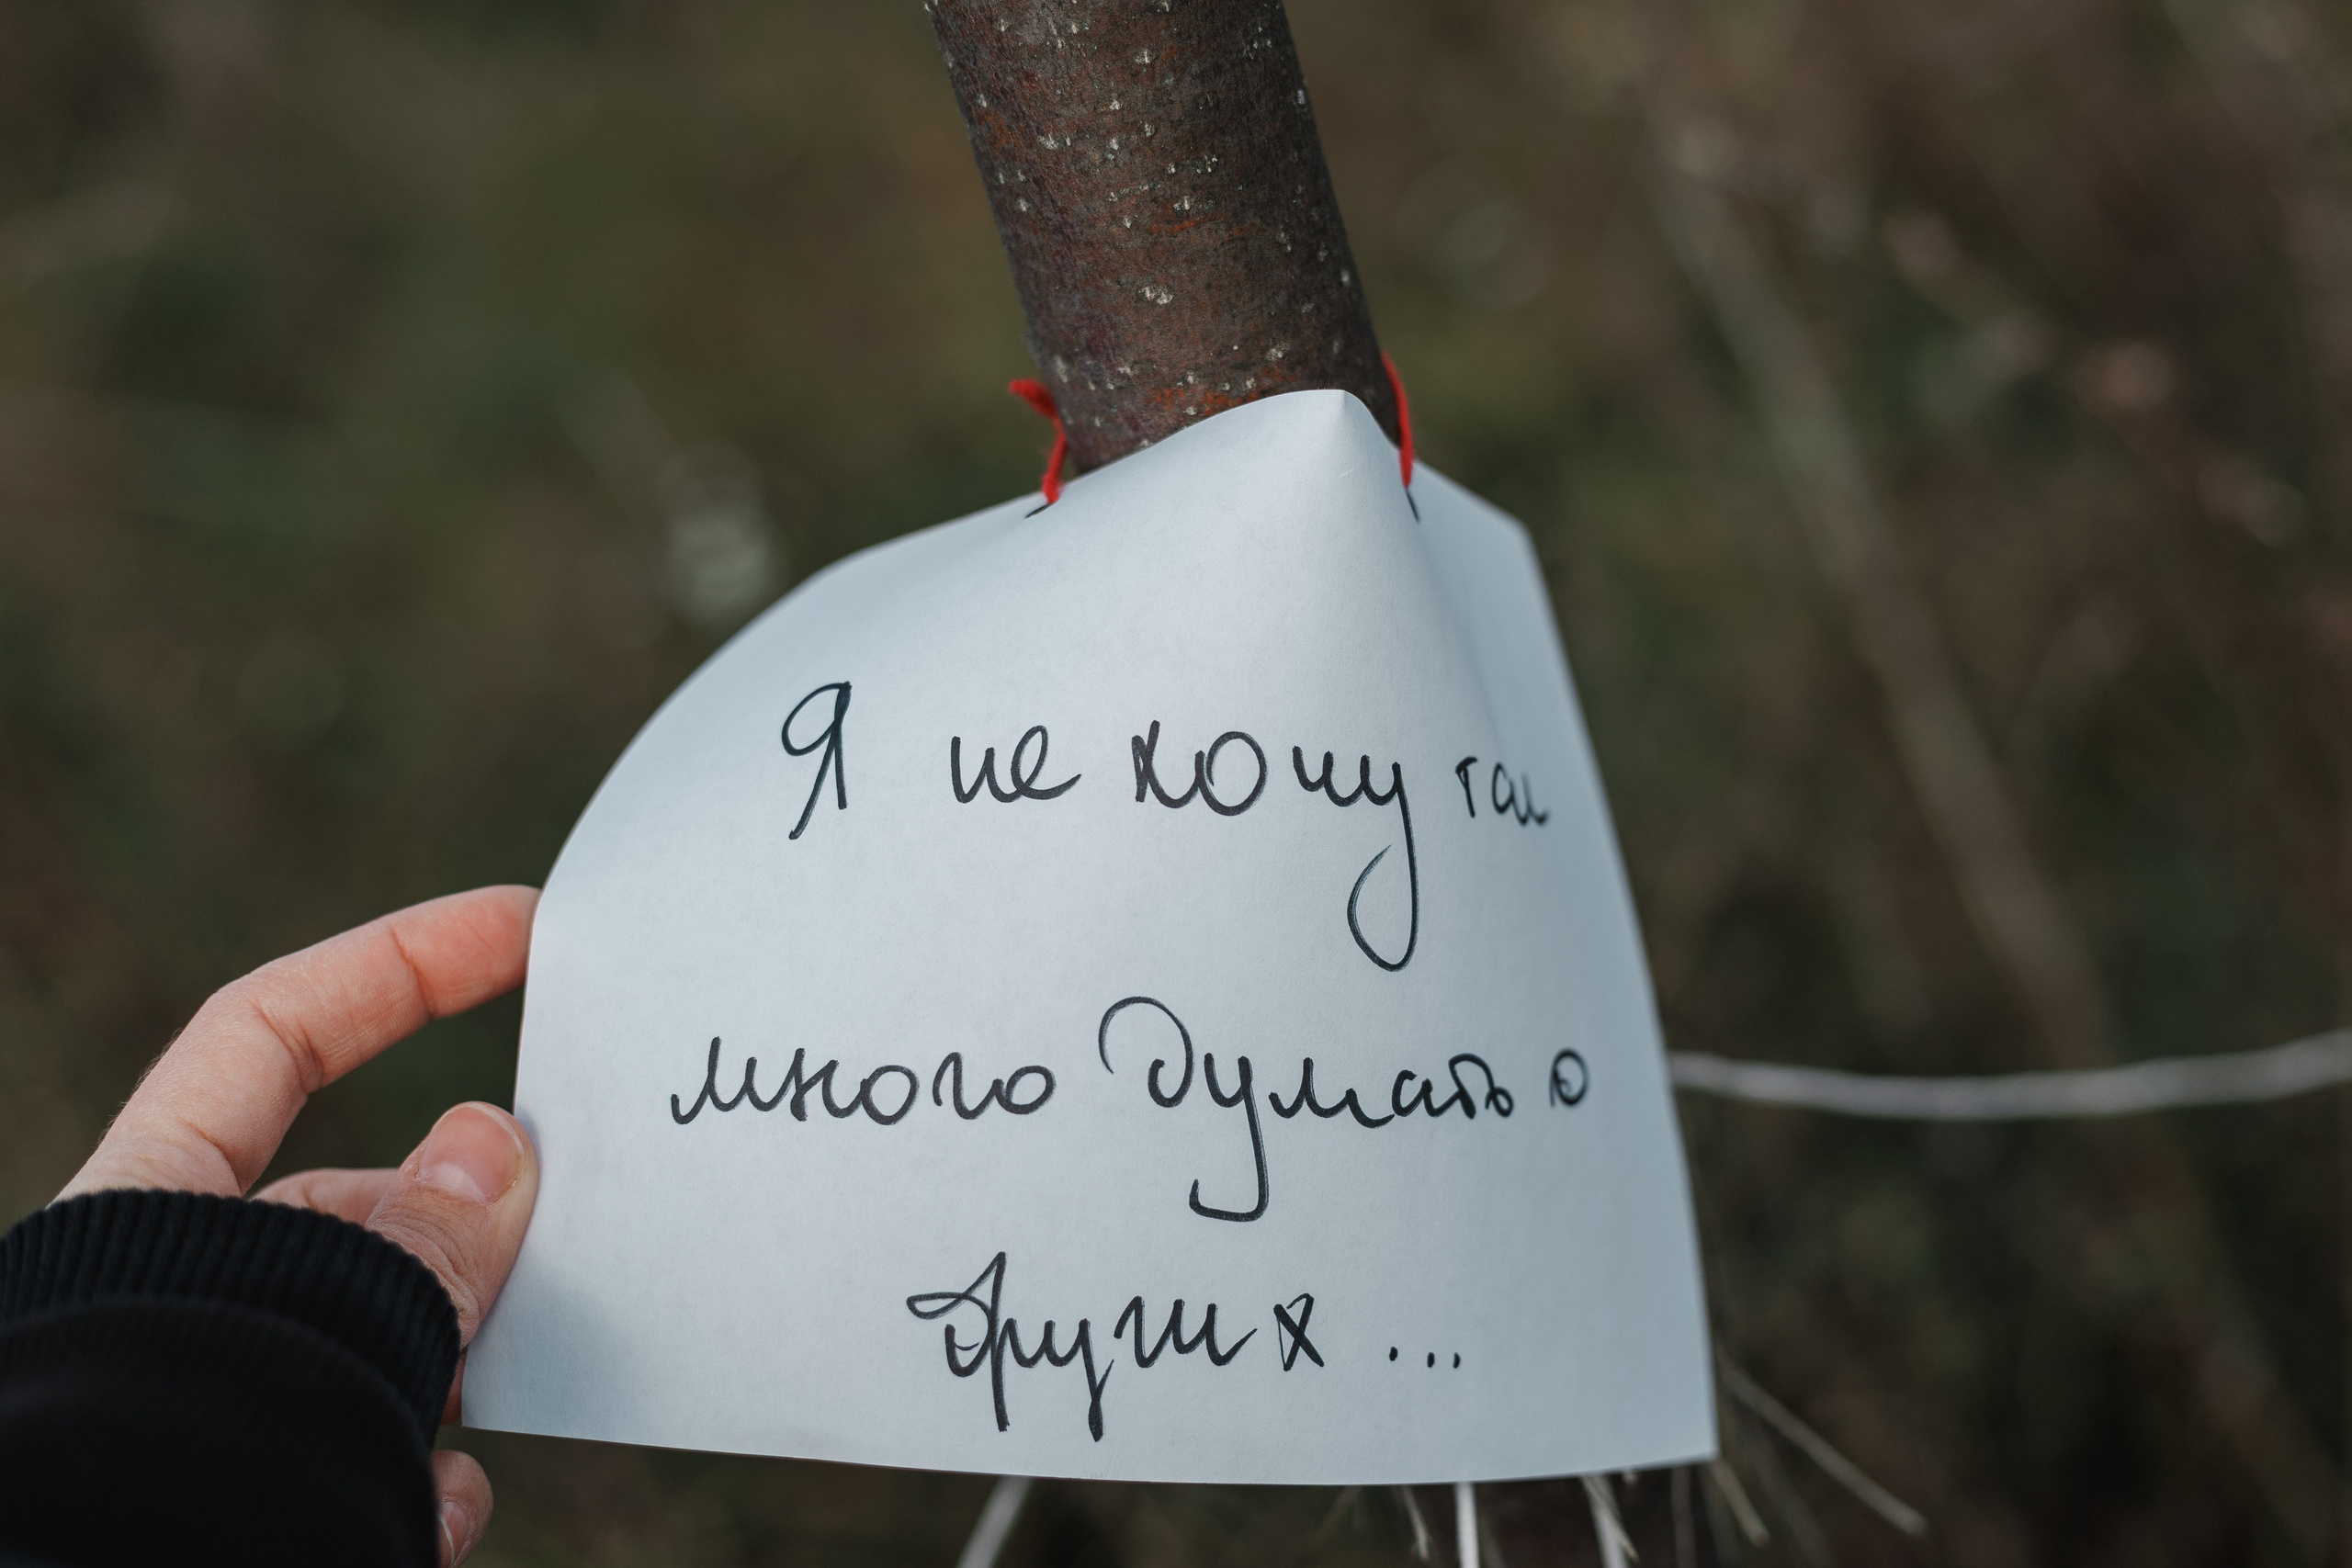 Я не хочу так
много думать о
других ...